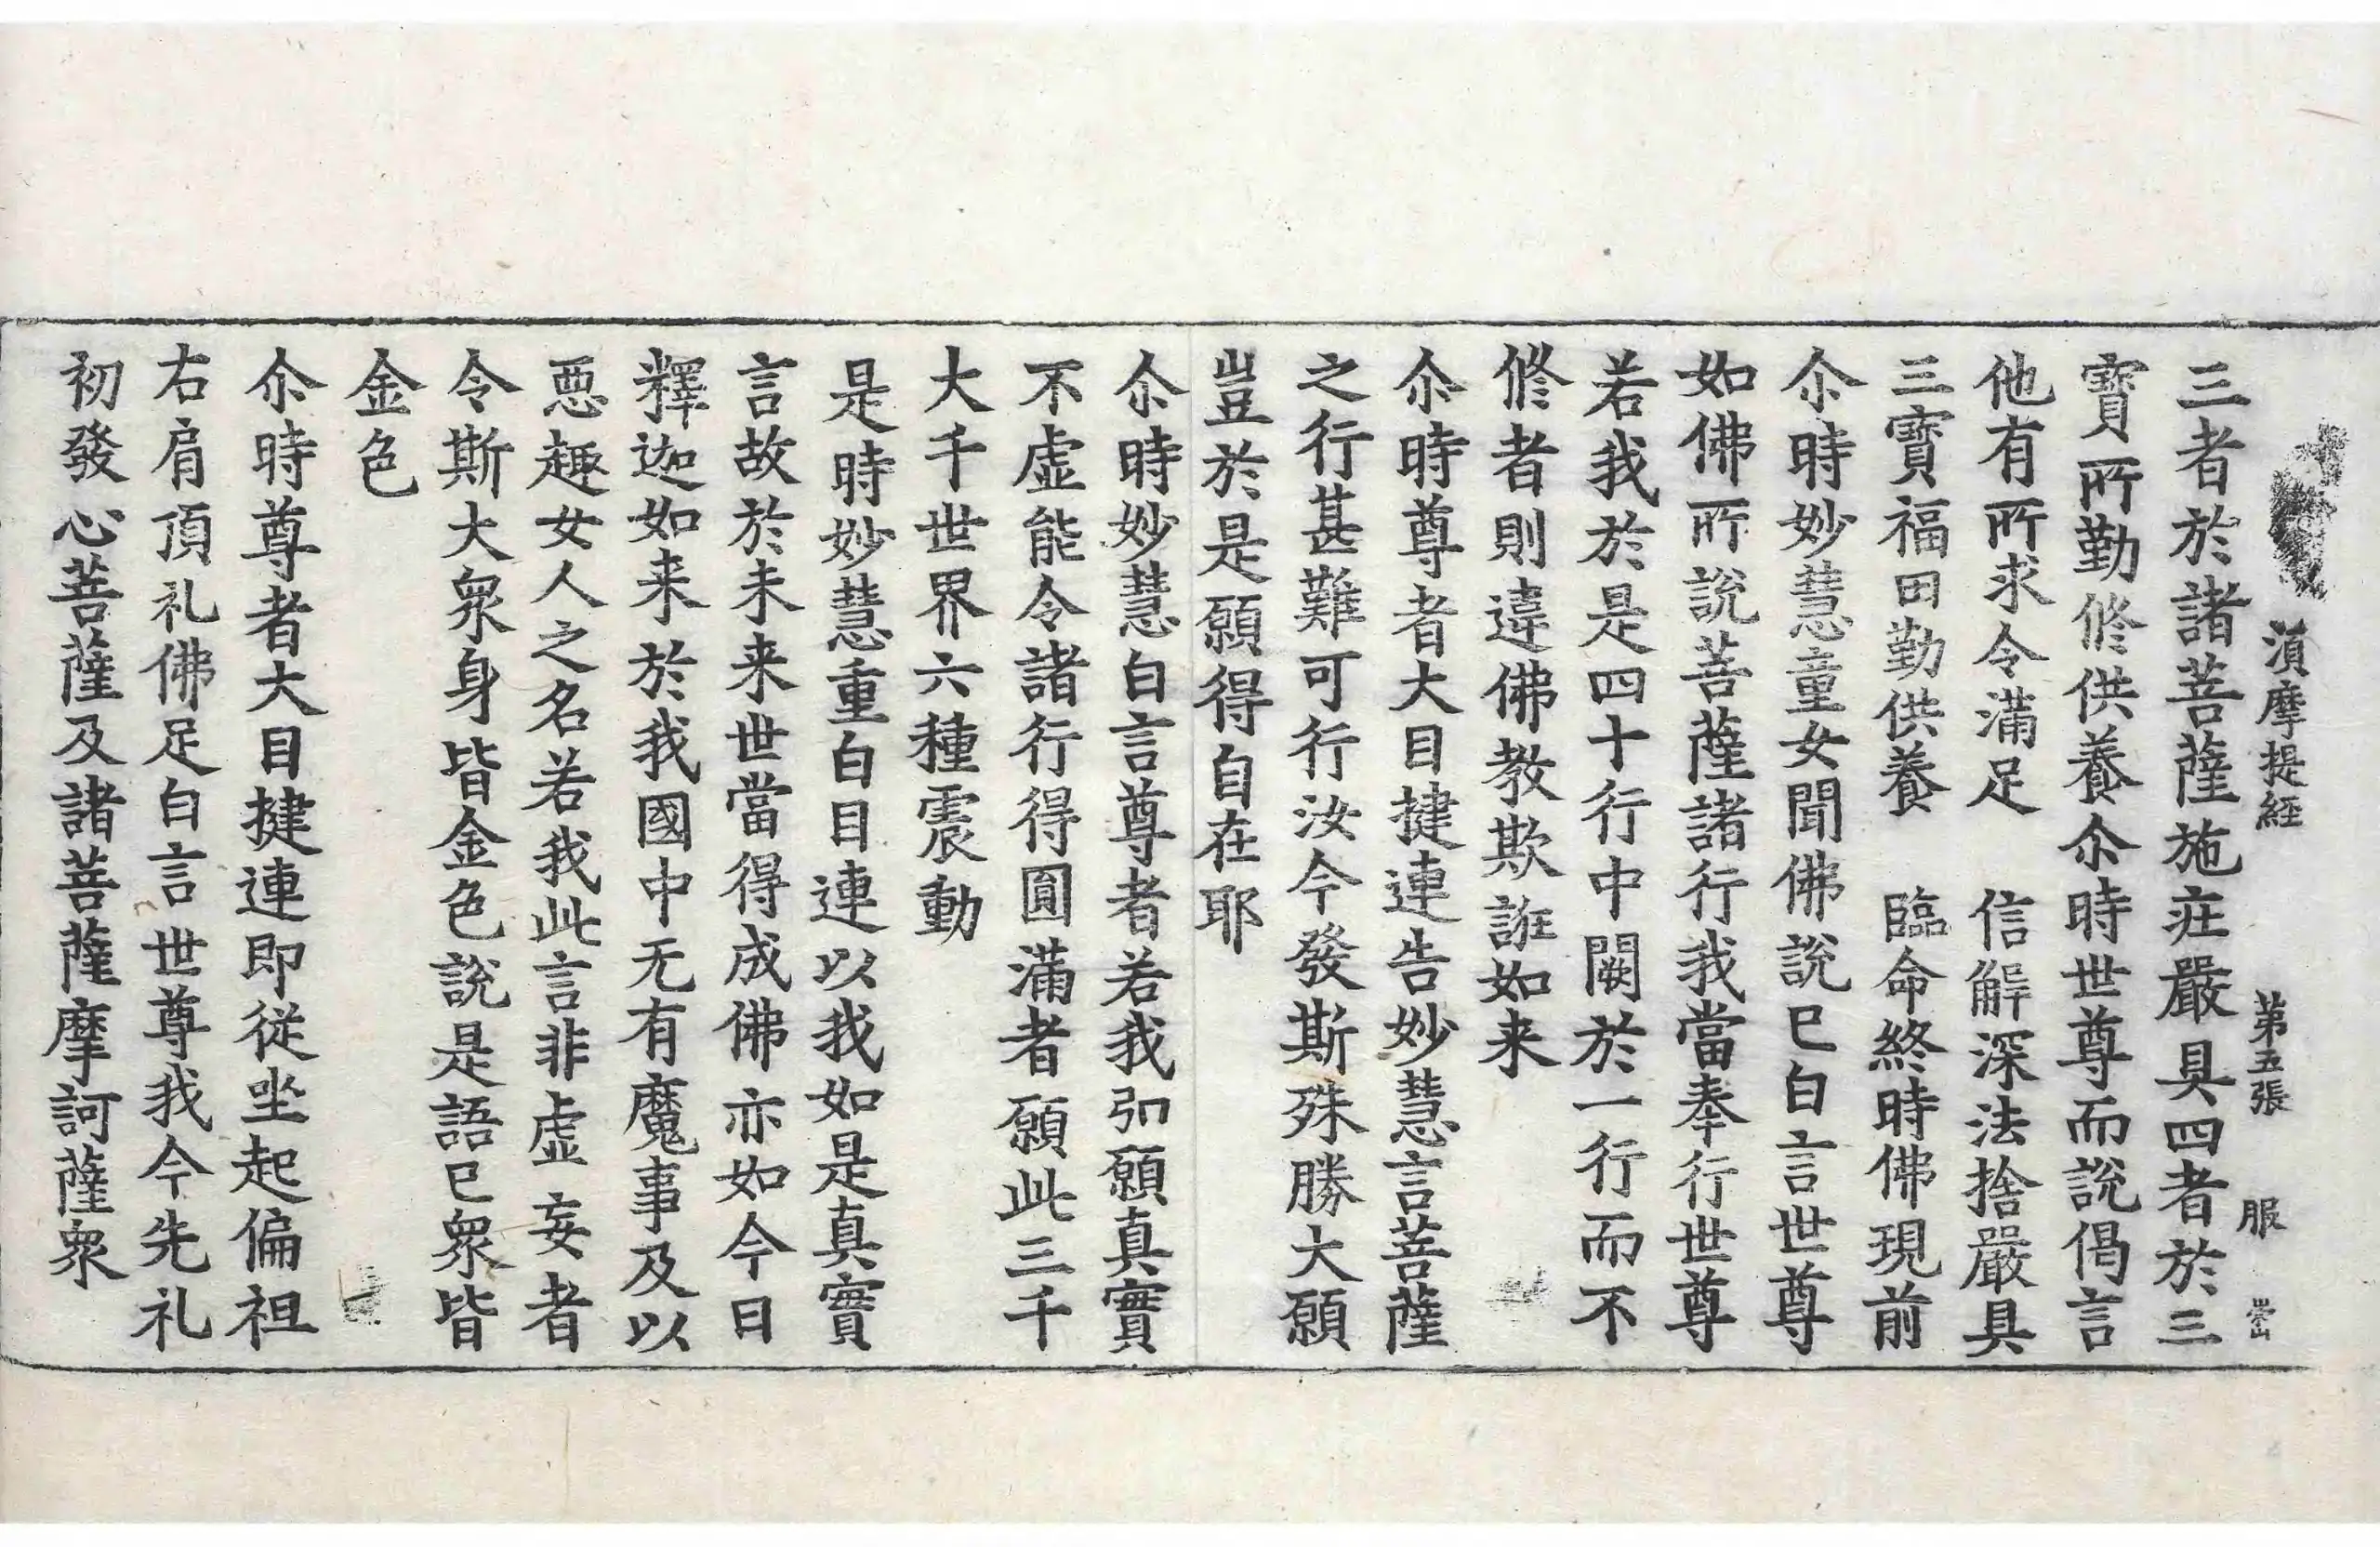 湏摩提経 第五張 服
三者於諸菩薩施庄嚴具四者於三
寶所勤修供養尒時世尊而說偈言
他有所求令滿足 信解深法捨嚴具
三寶福田勤供養 臨命終時佛現前
尒時妙慧童女聞佛說已白言世尊
如佛所說菩薩諸行我當奉行世尊
若我於是四十行中闕於一行而不
修者則違佛教欺誑如来
尒時尊者大目揵連告妙慧言菩薩
之行甚難可行汝今發斯殊勝大願
豈於是願得自在耶
尒時妙慧白言尊者若我弘願真實
不虛能令諸行得圓滿者願此三千
大千世界六種震動
是時妙慧重白目連以我如是真實
言故於未来世當得成佛亦如今日
釋迦如来於我國中无有魔事及以
惡趣女人之名若我此言非虛妄者
令斯大衆身皆金色說是語已衆皆
金色
尒時尊者大目揵連即從坐起偏袒
右肩頂礼佛足白言世尊我今先礼
初發心菩薩及諸菩薩摩訶薩衆